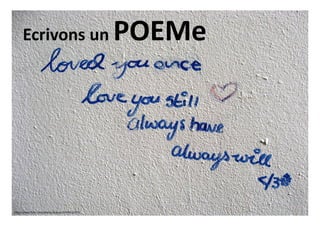 Ecrivons un POEMe
loved you once
love you still
always have
always will
</3